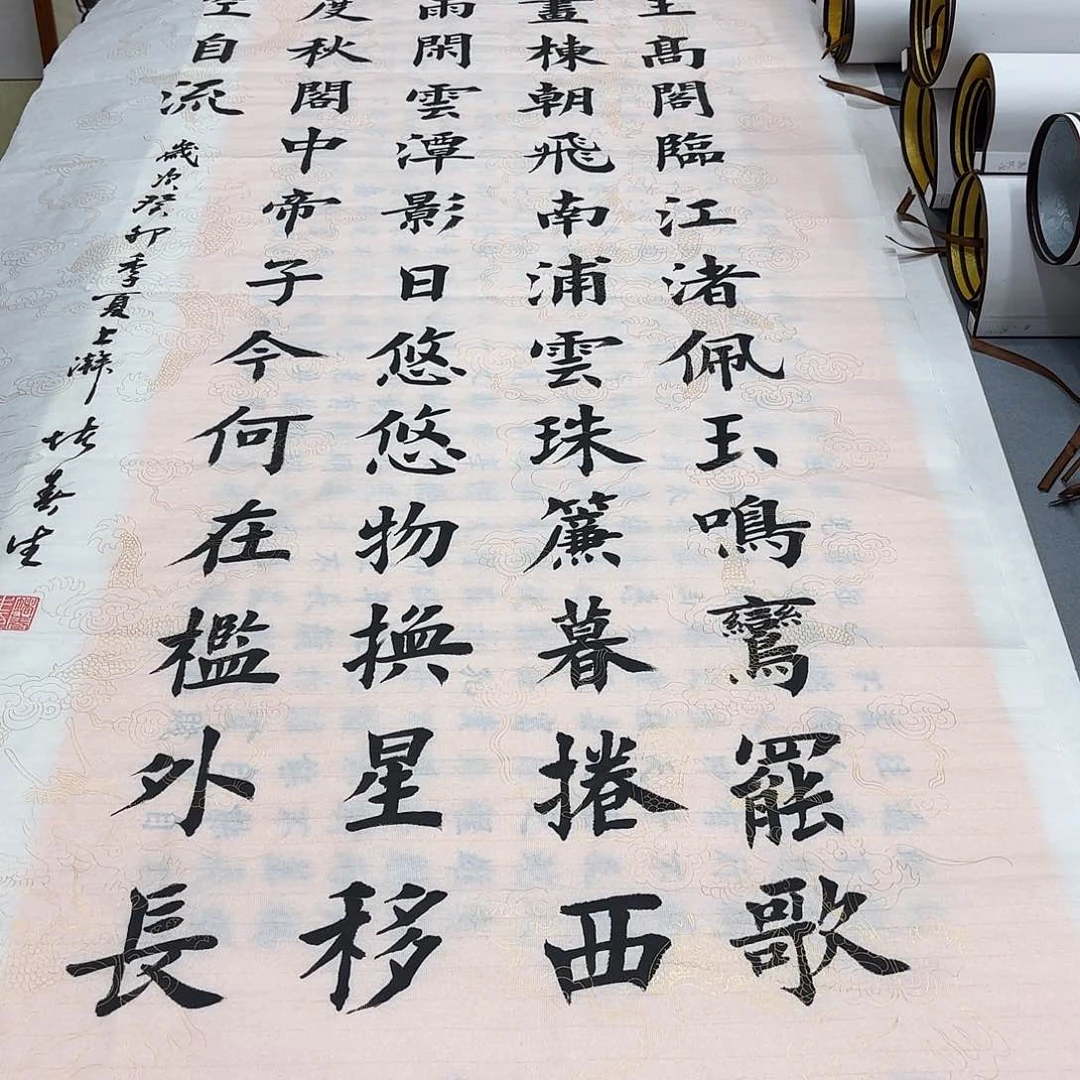 王高閣臨江渚佩玉鳴鸞罷歌
畫棟朝飛南浦雲珠簾暮捲西
雨閑雲潭影日悠悠物換星移
度秋閣中帝子今何在檻外長
空自流
歲次癸卯季夏上澣 春生